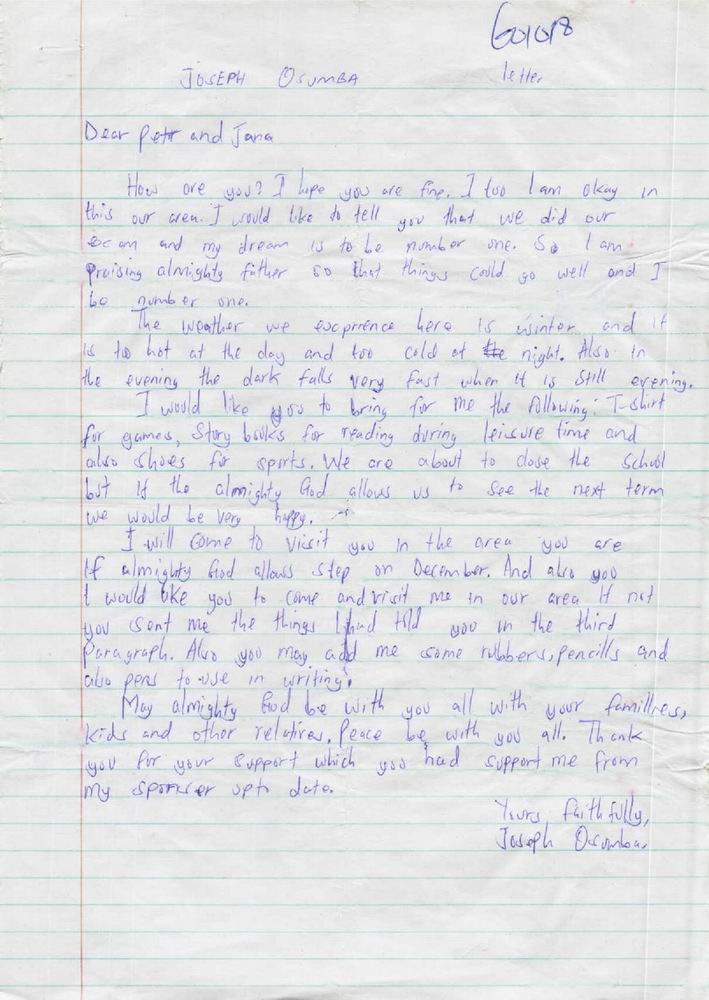 601018
JOSEPH OSUMBA letter
Dear Petr and Jana
How are you? I hope you are fine. I too I am okay in
this our area. I would like to tell you that we did our
excam and my dream is to be number one. So I am
praising almighty father so that things could go well and I
be number one.
The weather we excprience here is winter and it
is too hot at the day and too cold at the night. Also in
the evening the dark falls very fast when it is still evening.
I would like you to bring for me the following: T-shirt
for games, Story books for reading during leisure time and
also shoes for sports. We are about to close the school
but if the almighty God allows us to see the next term
we would be very happy.
I will come to vicsit you in the area you are
if almighty God allows step on December. And also you
I would like you to come and visit me in our area If not
you sent me the things I had told you in the third
Paragraph. Also you may add me some rubbers, pencills and
also pens to use in writing.
May almighty God be with you all with your famillies,
kids and other relatives. Peace be with you all. Thank
you for your support which you had support me from
my sponser upto date.
Yours faithfully,
Joseph Osumba.